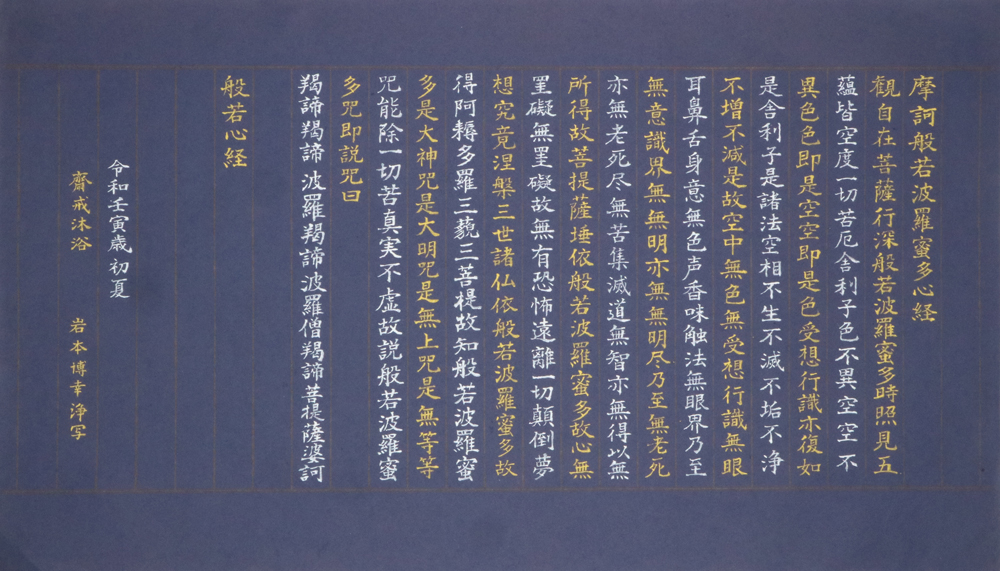 摩訶般若波羅蜜多心経
観自在菩薩行深般若波羅蜜多時照見五
蘊皆空度一切苦厄舎利子色不異空空不
異色色即是空空即是色受想行識亦復如
是舎利子是諸法空相不生不滅不垢不浄
不増不減是故空中無色無受想行識無眼
耳鼻舌身意無色声香味触法無眼界乃至
無意識界無無明亦無無明尽乃至無老死
亦無老死尽無苦集滅道無智亦無得以無
所得故菩提薩埵依般若波羅蜜多故心無
罣礙無罣礙故無有恐怖遠離一切顛倒夢
想究竟涅槃三世諸仏依般若波羅蜜多故
得阿耨多羅三藐三菩提故知般若波羅蜜
多是大神咒是大明咒是無上咒是無等等
咒能除一切苦真実不虚故説般若波羅蜜
多咒即説咒曰
羯諦羯諦 波羅羯諦 波羅僧羯諦 菩提薩婆訶
般若心経
令和壬寅歳 初夏
齋戒沐浴 岩本博幸 浄写